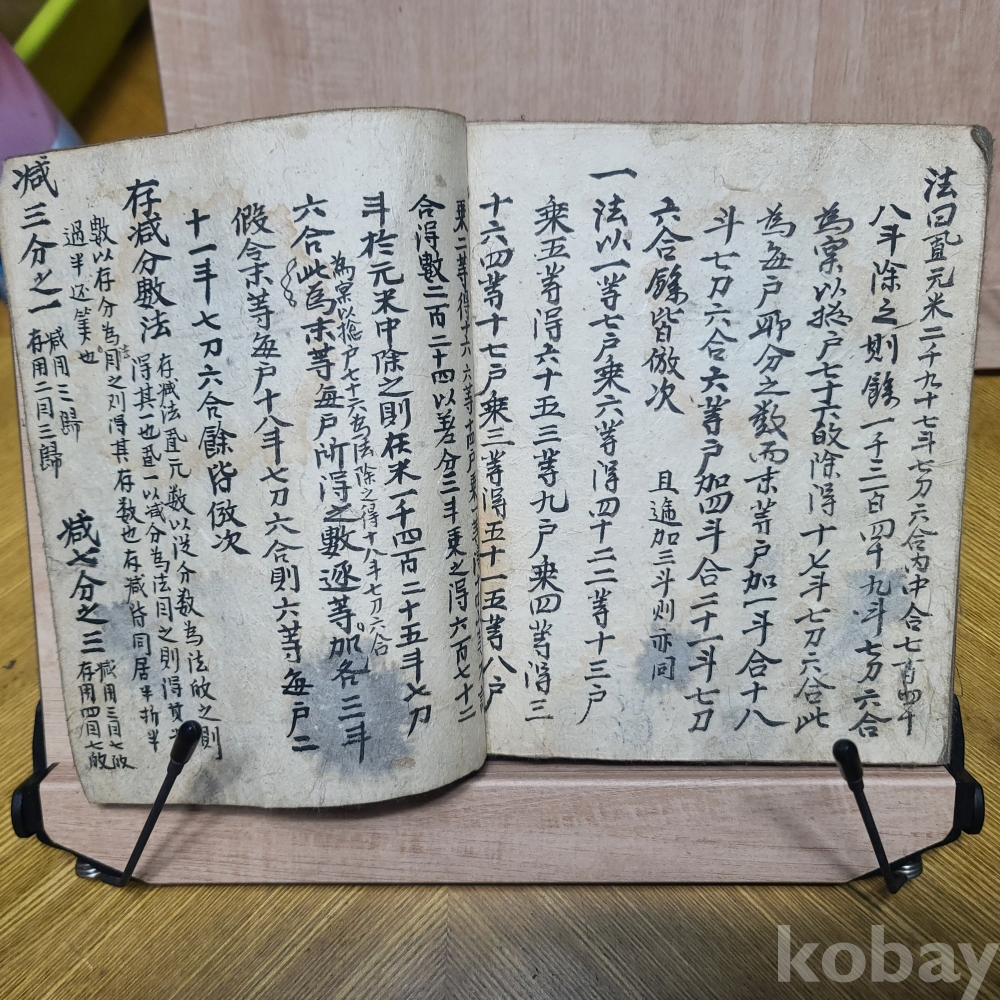 法曰置元米二千九十七斗七刀六合內中合七百四十
八斗除之則餘一千三百四十九斗七刀六合
為案以摠戶七十六㱁除得十七斗七刀六合此
為每戶所分之數而末等戶加一斗合十八
斗七刀六合六等戶加四斗合二十一斗七刀
六合餘皆倣次 且遞加三斗 亦同
一法以一等七戶乘六等得四十二二等十三戶
乘五等得六十五三等九戶乘四等得三
十六四等十七戶乘三等得五十一五等八戶
乘二等得十六六等十四戶乘一等
合得數二百二十四以差分三斗乘之得六百七十二
斗於元末中除之則在米一千四百二十五斗七刀
為案以摠戶七十六為法除之得十八斗七刀六合
六合此為末等每戶所得之數逐等加各三斗
假令末等每戶十八斗七刀六合則六等每戶二
十一斗七刀六合餘皆倣次
存減分數法 存減法置元數以 分數為法㱁之則
得其一也置一以減分為法因之則得其
數以存分為 因之則得其存數也存減皆同居半折半
過半還筭也
減三分之一 減用二歸
存用二因三歸
減七分之三 減用三因七㱁
存用四因七㱁
kobay